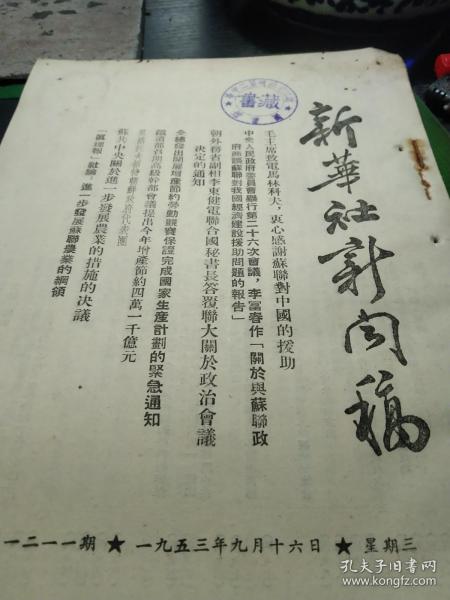 新華社新聞稿
毛主席致電馬林科夫,衷心感謝蘇聯對中國的援助
中央人民政府委員會舉行第二十六次會議,李富春作「關於與蘇聯政
府商談蘇聯對我國經濟建設援助問題的報告」
朝外務省副相李東健電聯合國秘書長答覆聯大關於政治會議
決定的通知
全總發出開展增產節約勞動競賽保證完成國家生產計劃的緊急通知
鐵道部召開高級幹部會議提出今年增產節約四萬一千億元
蘇共中央關於進一步發展農業的措施的决議
「眞理報」社論:進一步發展蘇聯農業的綱領
藏書
一二一一期 ★ 一九五三年九月十六日 ★ 星期三
孔夫子旧书网